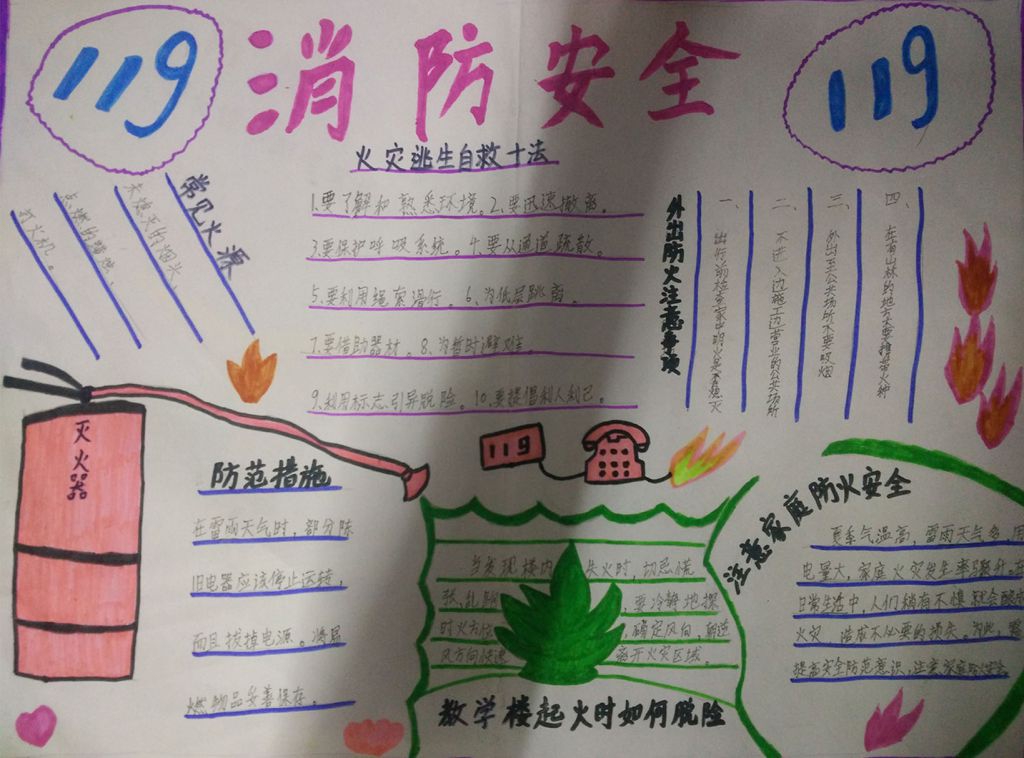 119
消防安全
119
火灾逃生自救十法
1.要了解和熟悉环境。2.要迅速撤离。
3.要保护呼吸系统。4.要从通道疏散。
5.要利用绳索滑行。6.为低层跳离。
7.要借助器材。8.为暂时避难。
9.利用标志引导脱险。10.要提倡利人利己。
常见火源
未熄灭的烟头、
点燃的蜡烛、
打火机。
外出防火注意事项
一、出行前检查家中明火是否熄灭
二、不进入边施工边营业的公共场所
三、外出至公共场所不要吸烟
四、在有山林的地方不要携带火种
灭火器
119
防范措施
在雷雨天气时，部分陈
旧电器应该停止运转，
而且拔掉电源。将易
燃物品妥善保存。
当发现楼内失火时，切忌慌
张、乱
，要冷静地探
，确定风向，
风方向快速离开火灾区域。
教学楼起火时如何脱险
注意家庭防火安全
夏季气温高，雷雨天气多，用
电量大，家庭火灾发生率骤升，在
日常生活中，人们稍有不慎就会酿成
火灾，造成不必要的损失。为此，需
提高安全防范意识，注意家庭